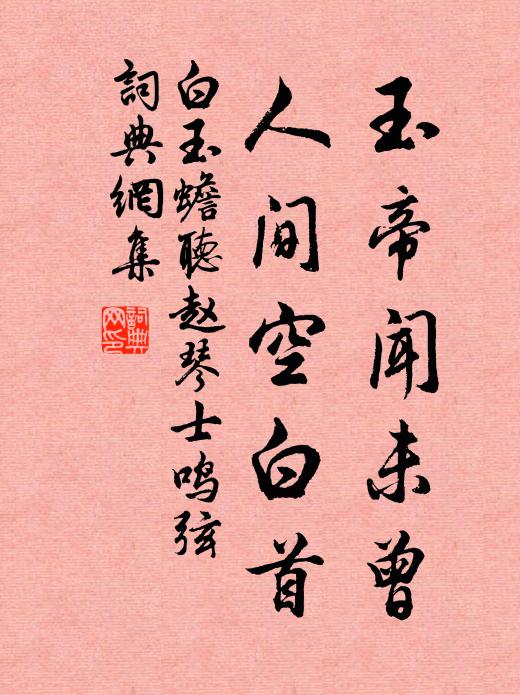 玉帝闻未曾
人间空白首
白玉蟾聽赵琴士鸣弦
詞典網集
詞典网印